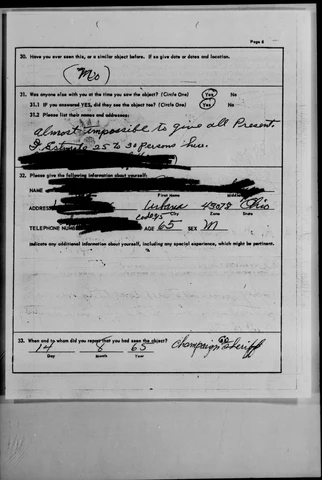 Page 6
30. Have you ever seen this, or a similar object before. If so give date or dates and location.
(No)
31. Was anyone else with you at the time you saw the object? (Circle One) Yes No
31.1 If you answered YES, did they see the object too? (Circle One) Yes No
31.2 Please list their names and addresses:
almost impossible to give all Present.
I Estimate 25 to 30 persons here.
32. Please give the following information about yourself:
NAME
First Name Middle
ADDRESS Urbana 43078 Ohio
City Zone State
TELEPHONE NUMBER AGE 65 SEX M
Indicate any additional information about yourself, including any special experience, which might be pertinent.
33. When and to whom did you report that you had seen the object?
14 8 65 Champaign Co Sheriff
Day Month Year